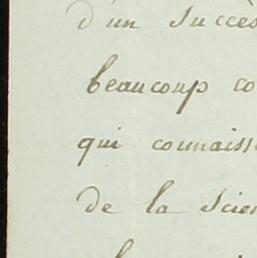 d'un succès
beaucoup co
qui connaiss
de la scien